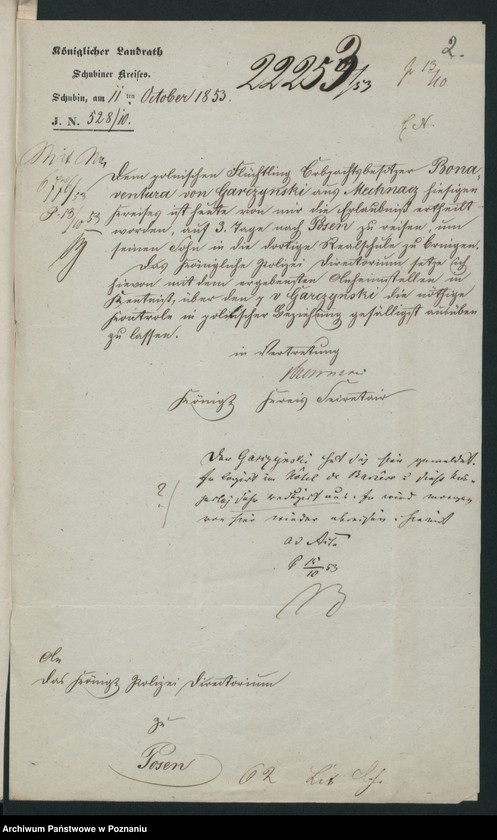 Königlicher Landrath
Schubiner Kreises.
Schubin, am 11ten October 1853.
J. N. 528/10.
22253/53
2.
p 13/10
Dem polnischen Flüchtling Erbpachtsbesitzer Bona-
ventura von Garczynski aus Mechnacz hiesigen
Kreises ist heute von mir die Erlaubniß ertheilt
worden, auf 3. Tage nach Posen zu reisen, um
seinen Sohn in die dortige Realschule zu bringen.
Das Königliche Polizei Directorium setze ich
hievon mit dem ergebensten Anheimstellen in
Kentniß, über den p v Garczynski die nöthige
Kontrole in polizeilicher Beziehung gefälligst ausüben
zu lassen.
in Vertretung
Königl Kreis Secretair
Der Garczynski hat sich hier gemeldet.
Er logirt im Hôtel de Bavière
. Er wird morgen
von hier wieder abreisen. hiermit
ad Acta
P 15/10 53
An
das Königl Polizei Directorium
zu
Posen
62
Archiwum Państwowe w Poznaniu